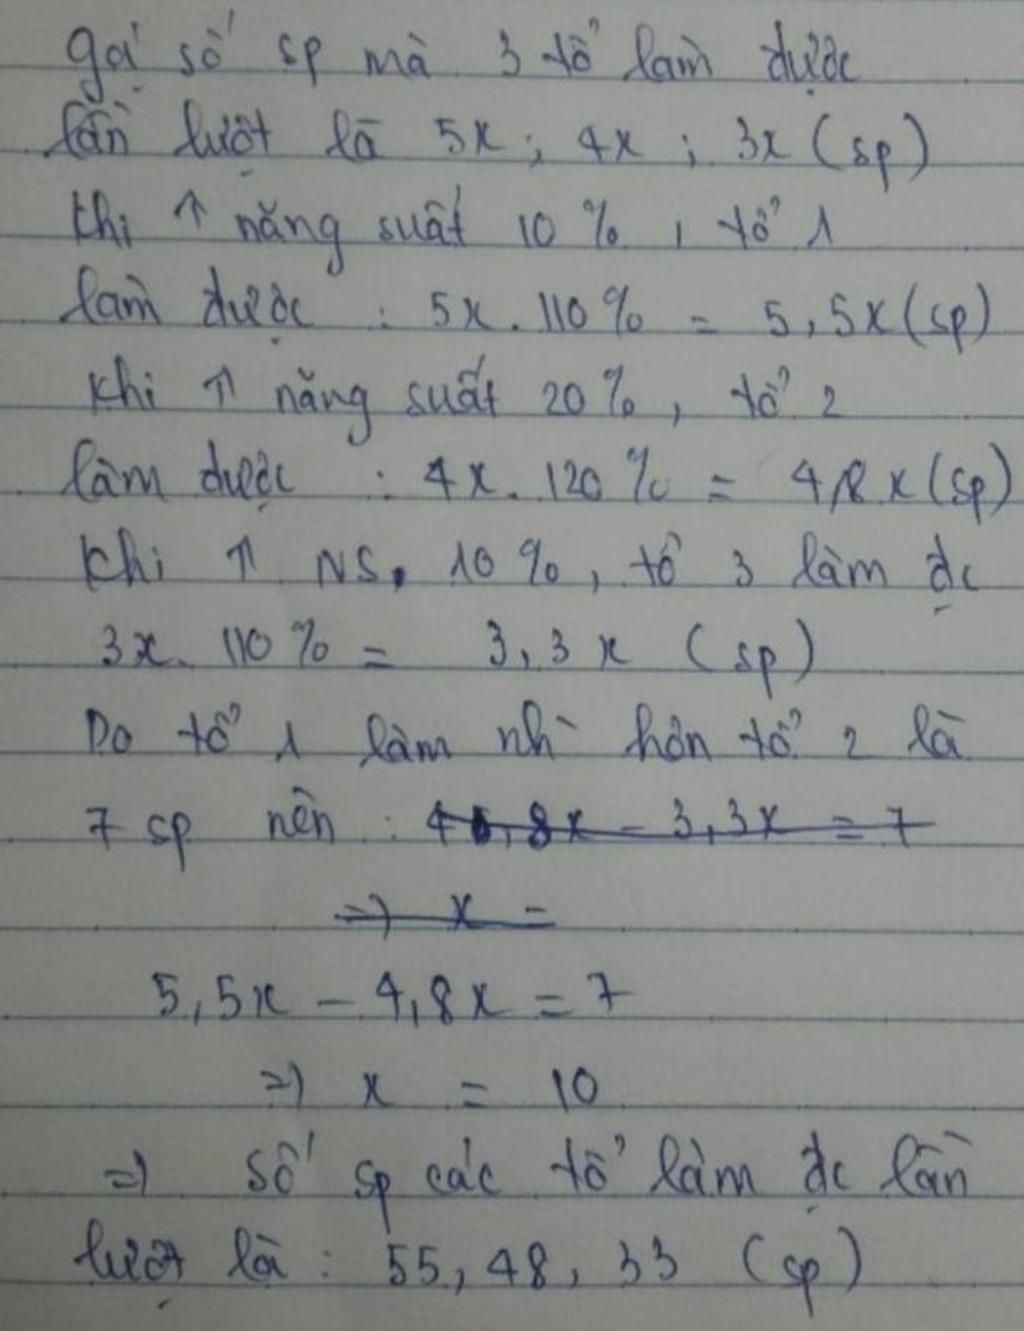 Gọi số sp mà 3 tổ làm được
lần lượt là 5x ; 4x ; 3x (sp)
Khi ↑ năng suất 10 % , tổ 1
làm được : 5x . 110 % = 5,5x (sp)
Khi ↑ năng suất 20 % , tổ 2
làm được : 4x . 120 % = 4,8x (sp)
Khi ↑ NS. 10 % , tổ 3 làm đc
3x . 110 % = 3,3x (sp)
Do tổ 1 làm nhì hơn tổ 2 là
7 sp nên : 4,8x - 3,3x = 7
=) x =
5,5x - 4,8x = 7
=) x = 10
=) số sp các tổ làm đc lần
lượt là : 55, 48, 33 (sp)